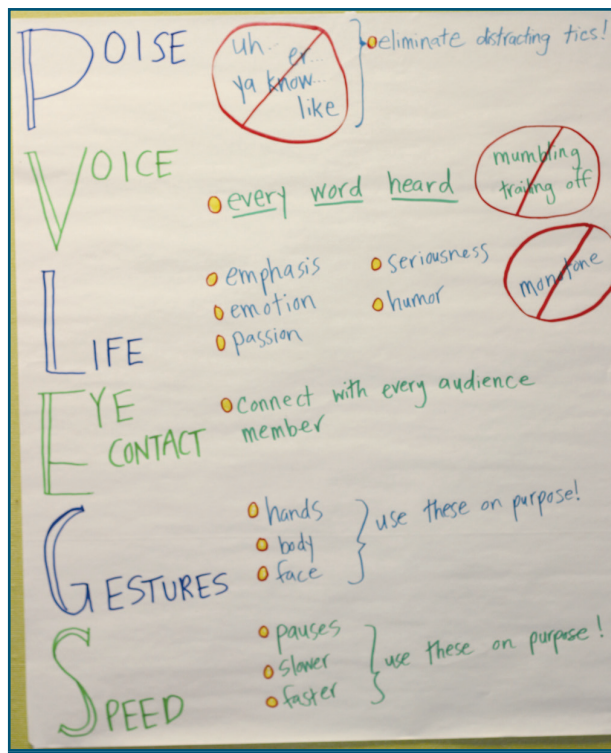 POISE
uh... er...
ya know...
like
eliminate distracting tics!
VOICE
every word heard
mumbling
trailing off
LIFE
emphasis
emotion
passion
seriousness
humor
monotone
EYE
CONTACT
connect with every audience
member
GESTURES
hands
body
face
use these on purpose!
SPEED
pauses
slower
faster
use these on purpose!